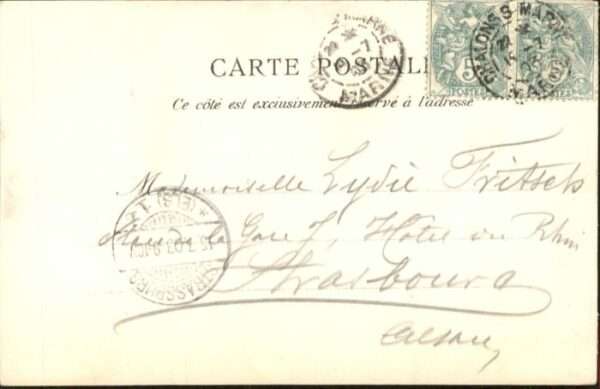 CARTE POSTALE
Ce côté est exclusivement réservé à l'adresse
CHALONS S. MARNE
MARNE
5
POSTES
Mademoiselle Lydie Fritsch
Place de la Gare 7, Hôtel du Rhin
Strasbourg
Alsace
STRASSBURG
(ELS)